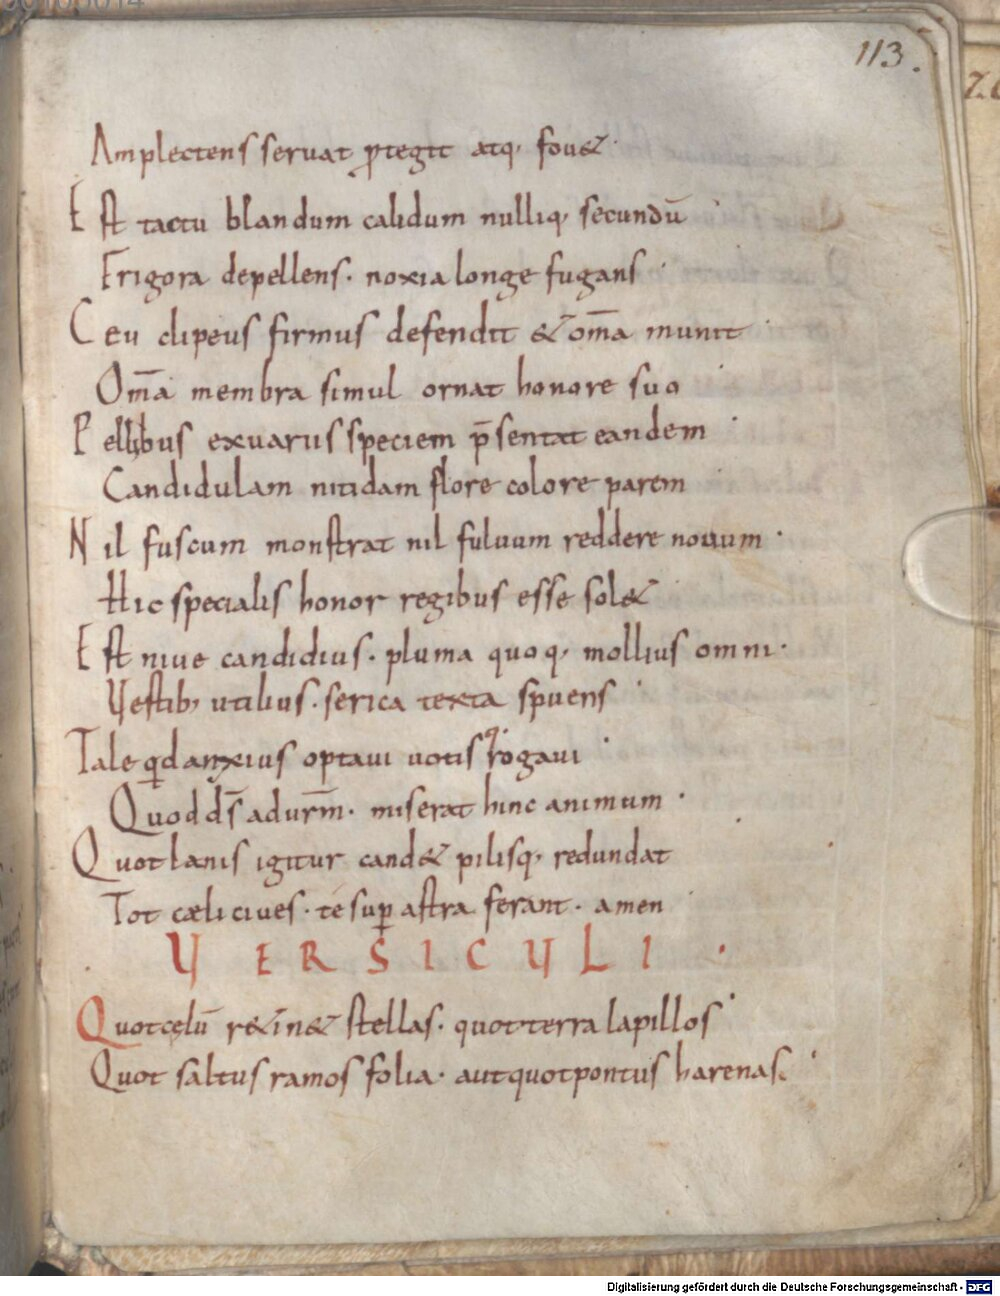 113.
Amplectens seruat ꝓtegit atq; fou&
Est tactu blandum calidum nulliq; secundū
Frigora depellens. noxia longe fugans
Ceu clipeus firmus defendit & om̄a munit
Om̄a membra simul ornat honore suo
Pellibus exuarus speciem p̄sentat eandem
Candidulam nitidam flore colore parem
Nil fuscum monstrat nil fuluum reddere nouum.
Hic specialis honor regibus esse sol&
Est niue candidius. pluma quoq; mollius omni.
Vestib; utilius. serica texta spuens
Tale qđ anxius optaui uotis q; rogaui
Quod dſ̄ ad urm̄. miserat hinc animum.
Quot lanis igitur cand& pilisq; redundat
Tot cæli ciues. te suꝑ astra ferant. amen
VERSICVLI.
Quot cęlū r&in& stellas. quot terra lapillos
Quot saltus ramos folia. aut quot pontus harenas.
Digitalisierung gefördert durch die Deutsche Forschungsgemeinschaft - DFG